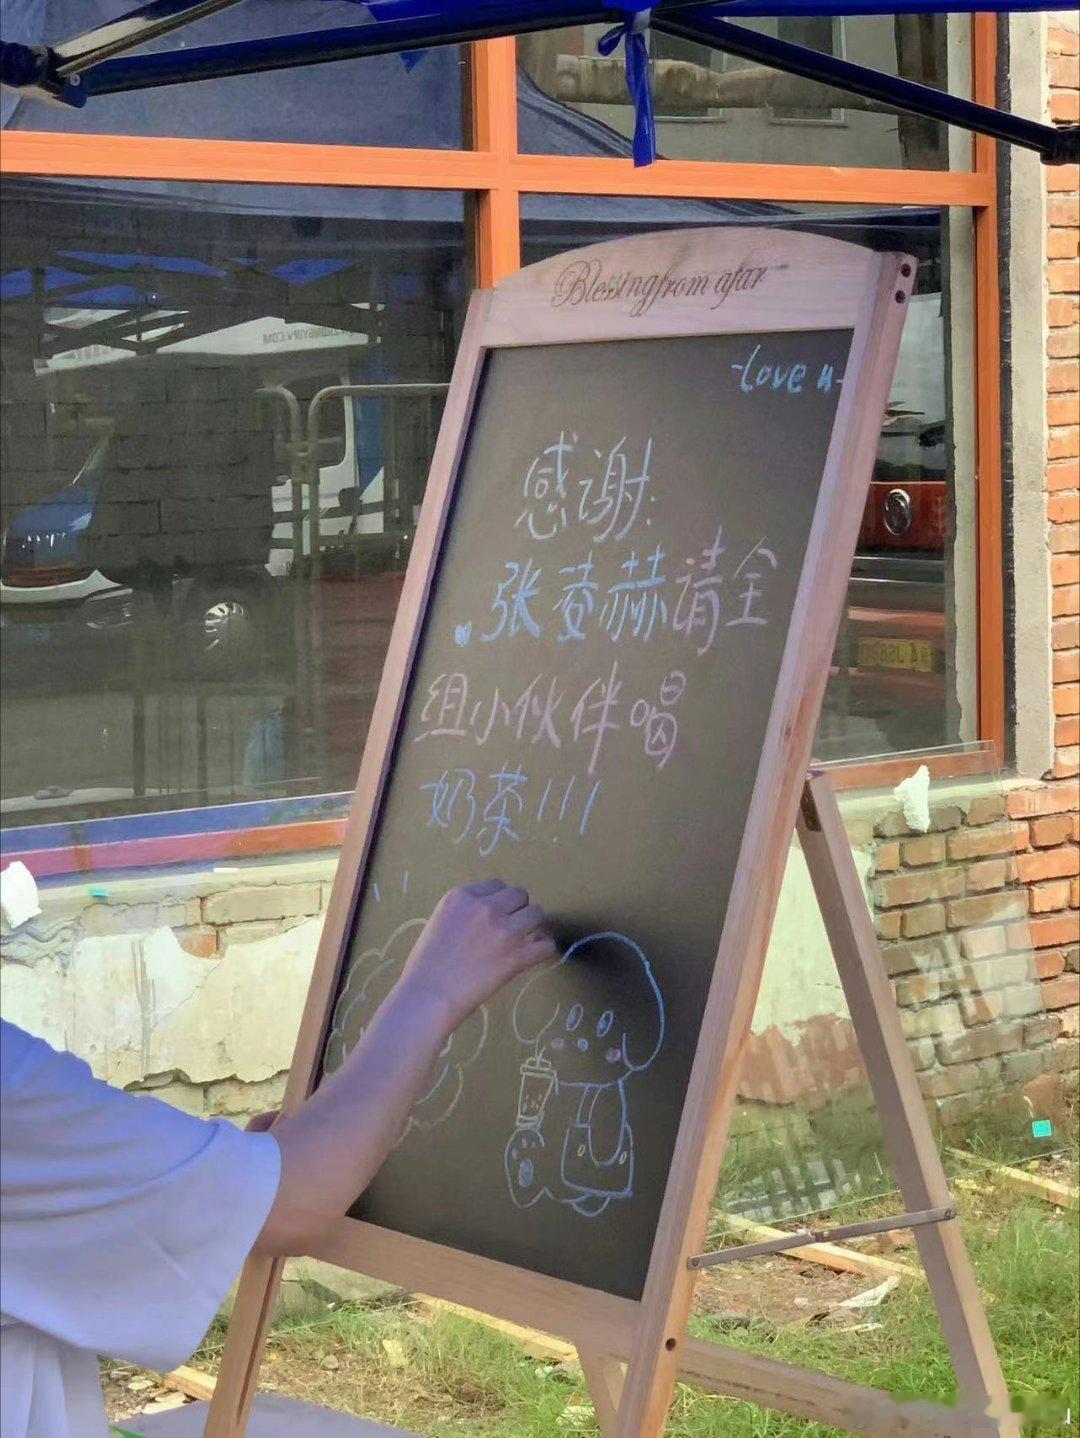 Blessing from afar
-love u-
感谢:
张壹赫请全
组小伙伴喝
奶茶!!!